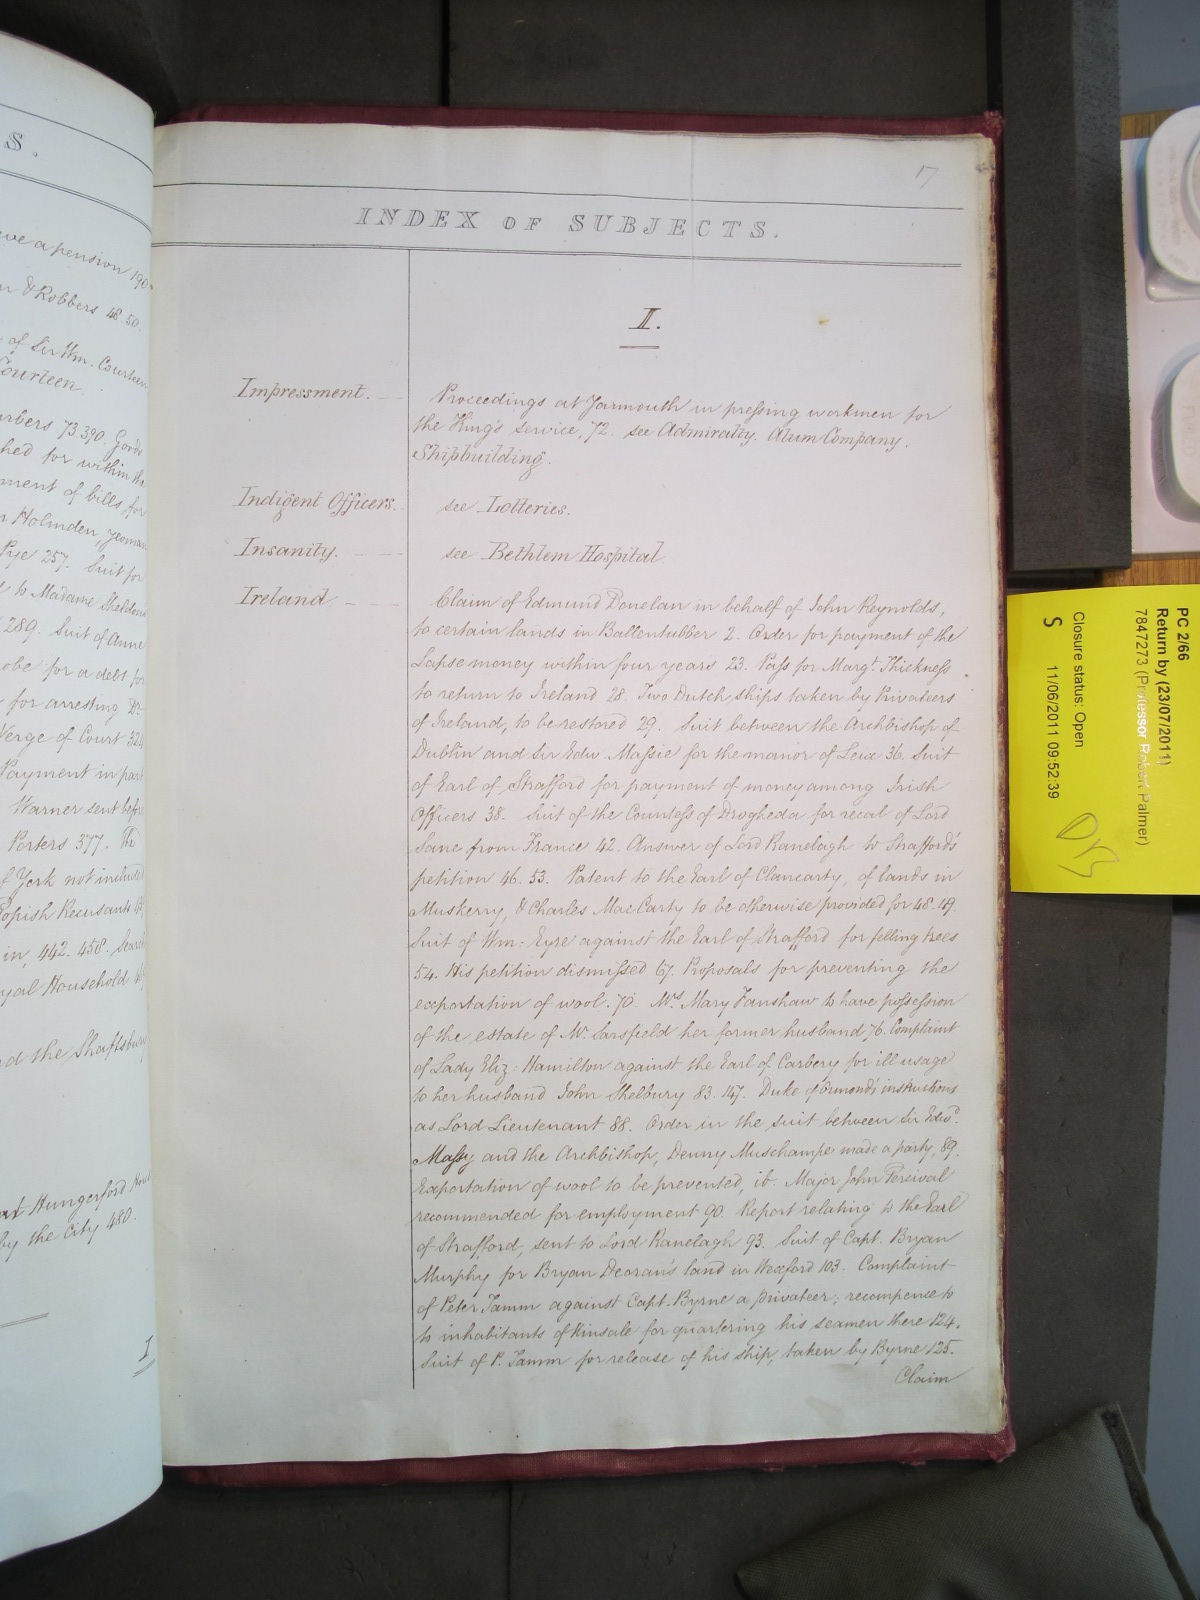 S.
eve a pension 190.
& Robbers 48. 50.
of Sir Wm. Courteen
Courteen.
73. 390. Goods
hed for within the
ment of bills for
Holmden, yeoman
Pye 257. Suit for
to Madame Sheldon
289. Suit of Anne
obe for a debt for
for arresting Dr.
Verge of Court 324
Payment in part
Warner sent before
Porters 377. The
f York not included
Popish Recusants
in, 442. 458. Search
yal Household
d the Shaftsbury
at Hungerford House
by the City 480.
I
17
INDEX OF SUBJECTS.
I.
Impressment. Proceedings at Yarmouth in pressing workmen for
the King's service, 72. see Admiralty. Alum Company.
Shipbuilding.
Indigent Officers. see Lotteries.
Insanity. see Bethlem Hospital.
Ireland Claim of Edmund Donelan in behalf of John Reynolds,
to certain lands in Ballentubber 2. Order for payment of the
Lapse money within four years 23. Pass for Margt. Thickness
to return to Ireland 28. Two Dutch ships taken by Privateers
of Ireland, to be restored 29. Suit between the Archbishop of
Dublin and Sir Edw. Massie for the manor of Leix 36. Suit
of Earl of Strafford for payment of money among Irish
Officers 38. Suit of the Countess of Drogheda for recal of Lord
Lane from France 42. Answer of Lord Ranelagh to Strafford's
petition 46. 53. Patent to the Earl of Clancarty, of lands in
Muskerry, & Charles MacCarty to be otherwise provided for 48. 49.
Suit of Wm. Eyre against the Earl of Strafford for felling trees
54. His petition dismissed 67. Proposals for preventing the
exportation of wool. 70. Mrs. Mary Fanshaw to have possession
of the estate of Mr. Sarsfield her former husband 76. Complaint
of Lady Eliz: Hamilton against the Earl of Carbery for ill usage
to her husband John Shelbury 83. 147. Duke of Ormond's instructions
as Lord Lieutenant 88. Order in the suit between Sir Edwd.
Massy and the Archbishop, Denny Muschampe made a party, 89.
Exportation of wool to be prevented, ib. Major John Percival
recommended for employment 90. Report relating to the Earl
of Strafford, sent to Lord Ranelagh 93. Suit of Capt. Bryan
Murphy for Bryan Deoran's land in Wexford 103. Complaint
of Peter Tamm against Capt. Byrne a privateer; recompence to
to inhabitants of Kinsale for quartering his seamen there 124.
Suit of P. Tamm for release of his ship, taken by Byrne 125.
Claim
PC 2/66
Return by (23/07/2011)
7847273 (Professor Robert Palmer)
Closure status: Open
S 11/06/2011 09:52:39